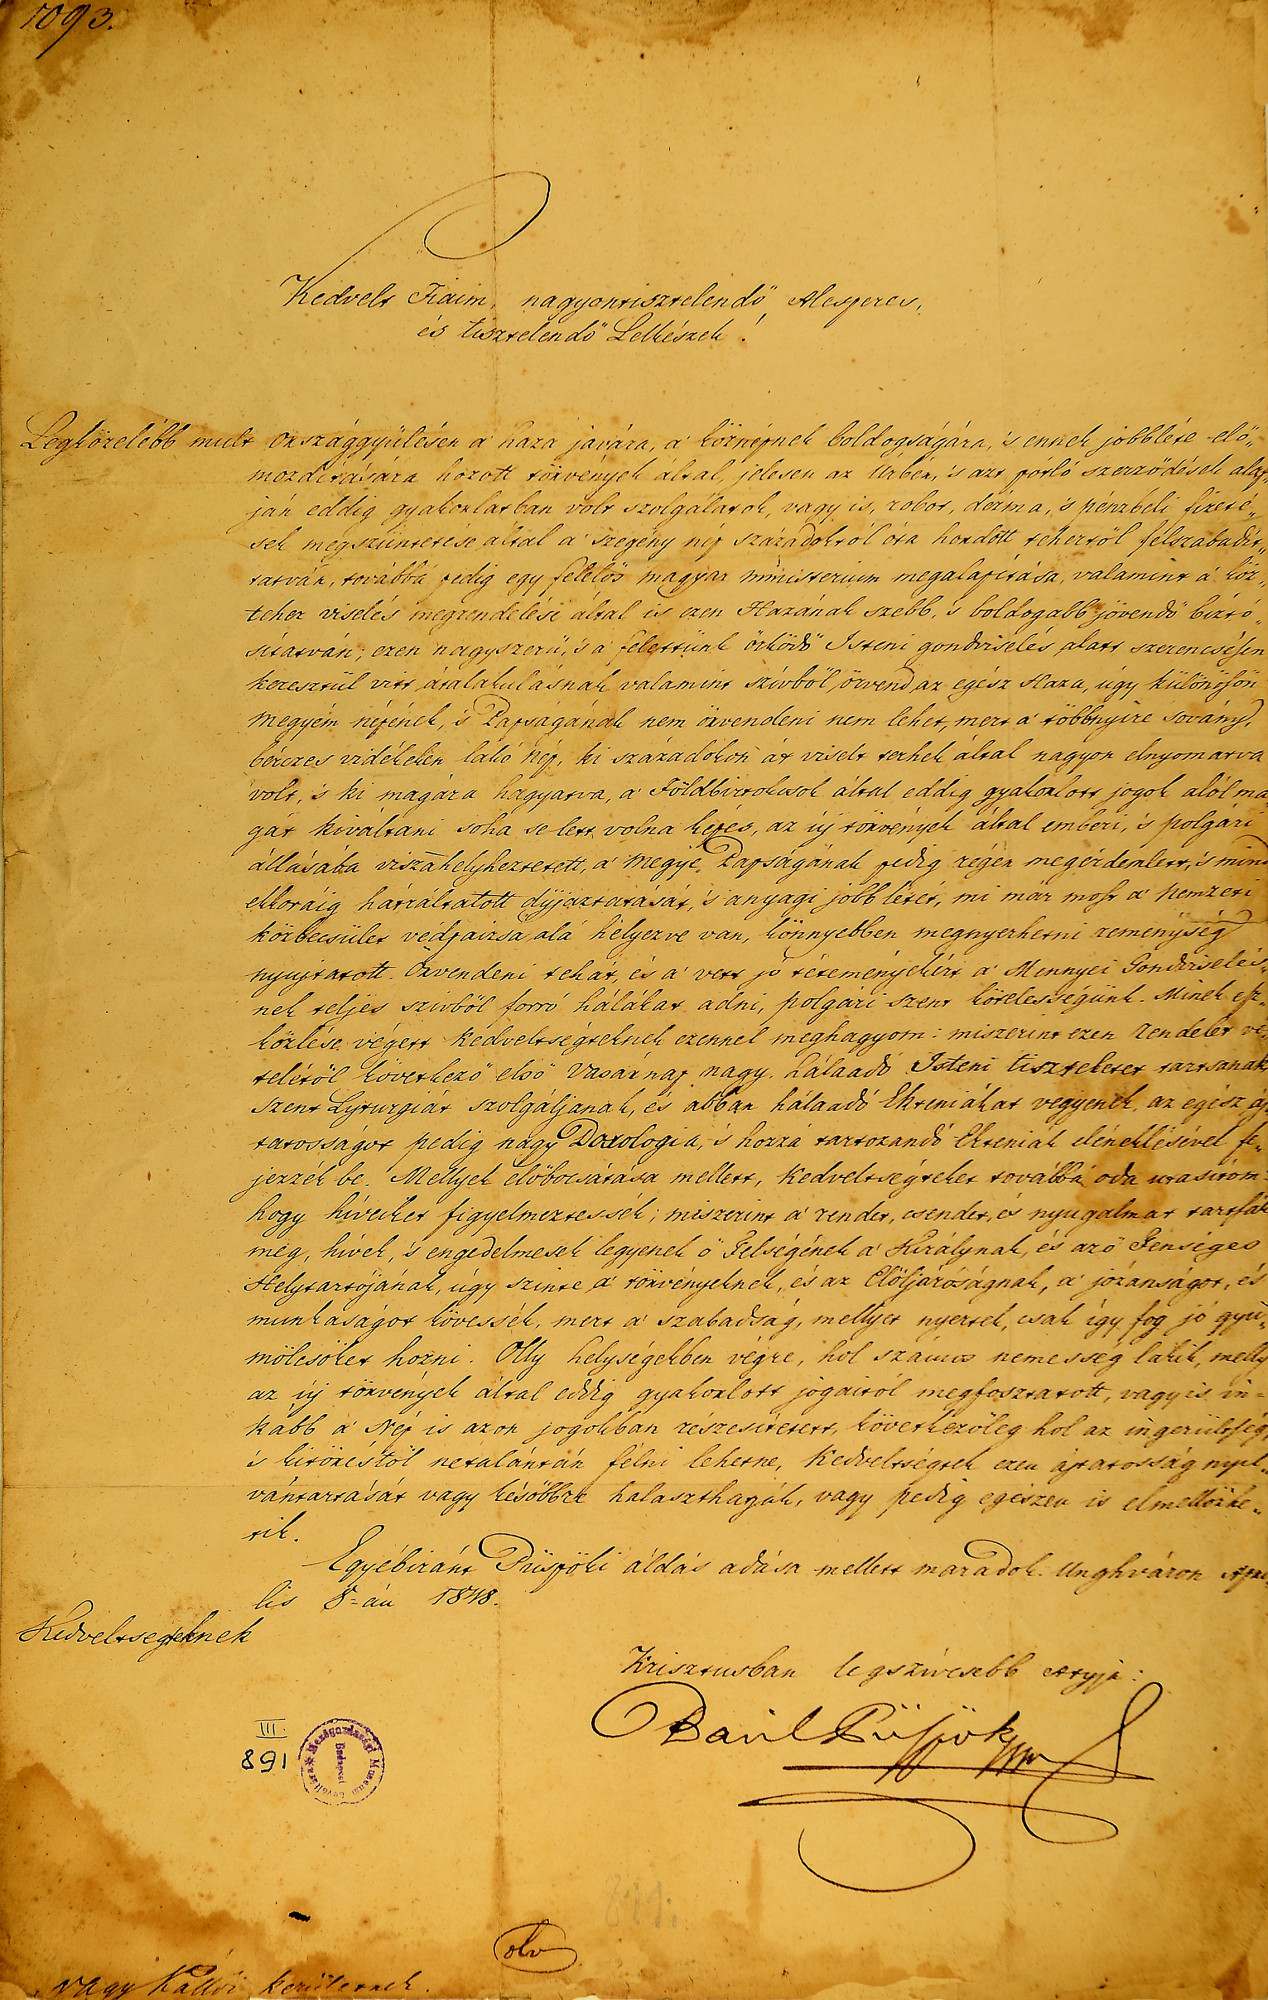 1093.
Kedvelt Fiaim, nagyontisztelendő Alesperes,
és tisztelendő Lelkészek!
Legközelébb mult országgyülésen a' haza javára, a' köznépnek boldogságára, 's ennek jobbléte elő„
mozdítására hozott törvények által, jelesen az Urbér, 's azt pótló szerződések alap„
ján eddig gyakorlatban volt szolgálatok, vagy is, robot, dézma, 's pénzbeli fizeté„
sek megszüntetése által a' szegény nép századoktól óta hordott tehertől felszabadít„
tatván, továbbá pedig egy felelős magyar ministerium megalapítása, valamint a' köz„
teher viselés megrendelése által is ezen Hazának szebb, 's boldogabb jövendő bizto„
síttatván; ezen nagyszerű, 's a' felettünk őrködő Isteni gondviselés alatt szerencsésen
keresztül vitt átalakulásnak valamint szívből örvend az egész Haza, úgy különösön
Megyém népének, 's Papságának nem örvendeni nem lehet, mert a' többnyire sovány,
bérczes vidékeken lakó nép, ki századokon át viselt terhek által nagyon elnyomatva
volt, 's ki magára hagyatva, a' Földbirtokosok által eddig gyakorlott jogok alól ma„
gát kiváltani soha se lett volna képes, az új törvények által emberi, 's polgári
állásába viszáhelyheztetett, a' Megye Papságának pedig régen megérdemlett, 's mind
ekkoráig hátráltatott díjaztatását, 's anyagi jobblétét, mi már most a' nemzeti
közbecsület védpaizsa alá helyezve van, könnyebben megnyerhetni reménység
nyujtatott. Örvendeni tehát, és a' vett jó téteményekért a' Mennyei Gondviselés„
nek teljes szivből forró hálákat adni, polgári szent kötelességünk. Minek esz„
közlése végett Kedveltségteknek ezennel meghagyom: miszerint ezen rendelet vé„
teléről következő első Vasárnap nagy hálaadó Isteni tiszteletet tartsanak
szent Lyturgiát szolgáljanak, és abban hálaadó Ekteniákat vegyenek, az egész áj„
tatosságot pedig nagy Doxologia, 's hozzá tartozandó Ekteniák éléneklésével fe„
jezzék be. Mellyek előbocsátása mellett, Kedveltségteket továbbá oda utasítom:
hogy híveiket figyelmeztessék; miszerint a' rendet, csendet, és nyugalmat tartsák
még, hívek, 's engedelmesek legyenek ő Felségének a' Királynak, és az ő Fenséges
Helytartójának, úgy szinte a' törvényeknek, és az Elöljaróságnak, a' józanságot, és
munkaságot kövessék, mert a' szabadság, mellyet nyertek, csak így fog jó gyü„
mölcsöket hozni. Olly helységekben végre, hol számos nemesség lakik, melly
az új törvények által eddig gyakorlott jogaitól megfosztatott, vagy is in=
kább a' Nép is azon jogokban részesítetett, következőleg hol az ingerültség,
's kitöréstől netalántán félni lehetne, Kedveltségtek ezen ájtatosság nyil„
vántartását vagy későbbre halaszthatják, vagy pedig egészen is elmellőzhe„
tik.
Egyébiránt Püspöki áldás adása mellett maradok. Unghváron Apri
lis 8-án 1848.
Kedveltségteknek
Krisztusban legszívesebb Attyja:
Bazil Püspök
III.
891
Mezőgazdasági Muzeum Levéltára
Budapest
811.
olv
Nagy Kállói kerületnek.